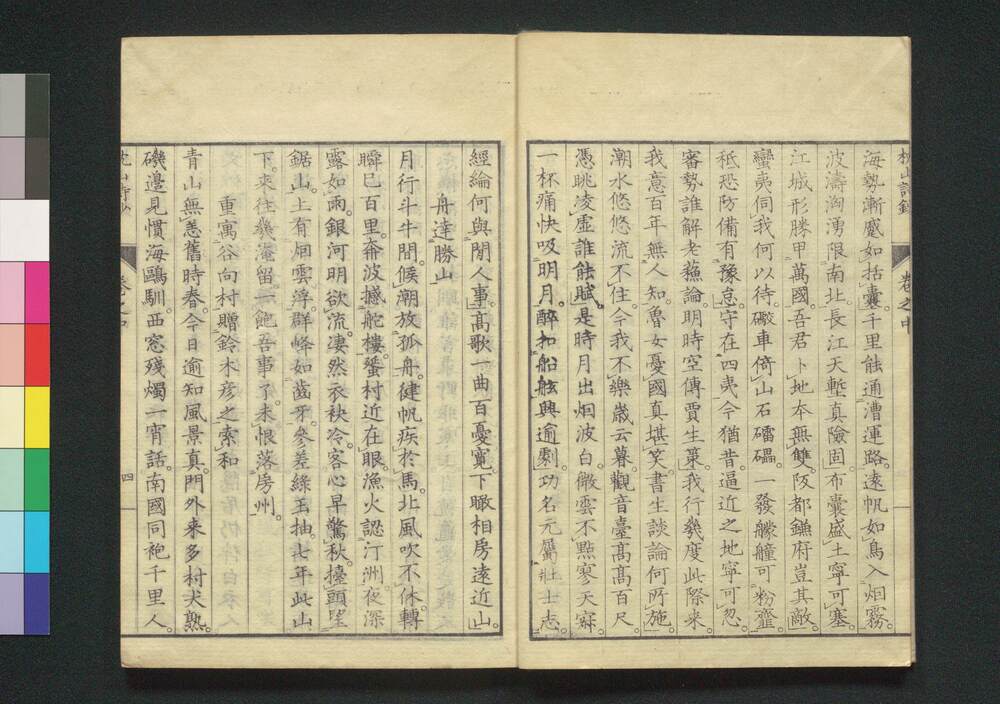 枕山詩鈔 卷之中
海勢漸蹙如括囊。千里能通漕運路。遠帆如鳥入烟霧。
波濤洶湧限南北。長江天塹真險固。布囊盛土寧可塞。
江城形勝甲萬國。吾君卜地本無雙。阪都鎌府豈其敵。
蠻夷伺我何以待。礮車倚山石礌礧。一發艨艟可粉虀。
秪恐防備有豫怠。守在四夷今猶昔。逼近之地寧可忽。
審勢誰解老蘇論。明時空傳賈生策。我行幾度此際來。
我意百年無人知。魯女憂國真堪笑。書生談論何所施。
潮水悠悠流不住。今我不樂歲云暮。觀音臺高高百尺。
憑眺凌虛誰能賦。是時月出烟波白。微雲不點寥天寂。
一杯痛快吸明月。醉扣船舷興逾劇。功名元屬壯士志。
經綸何與閒人事。高歌一曲百憂寬。下瞰相房遠近山。
舟達勝山
月行斗牛間。候潮放孤舟。健帆疾於馬。北風吹不休。轉
瞬已百里。奔波撼舵樓。蜑村近在眼。漁火認汀洲。夜深
露如雨。銀河明欲流。凄然衣袂冷。客心早驚秋。擡頭望
鋸山。上有烟雲浮。群峰如齒牙。參差綠玉抽。七年此山
下。來往幾淹留。一飽吾事了。未恨落房州。
重寓谷向村贈鈴木彥之索和
青山無恙舊時春。今日逾知風景真。門外來多村犬熟。
磯邊見慣海鷗馴。西窓殘燭一宵話。南國同袍千里人。
枕山詩鈔 卷之中 四